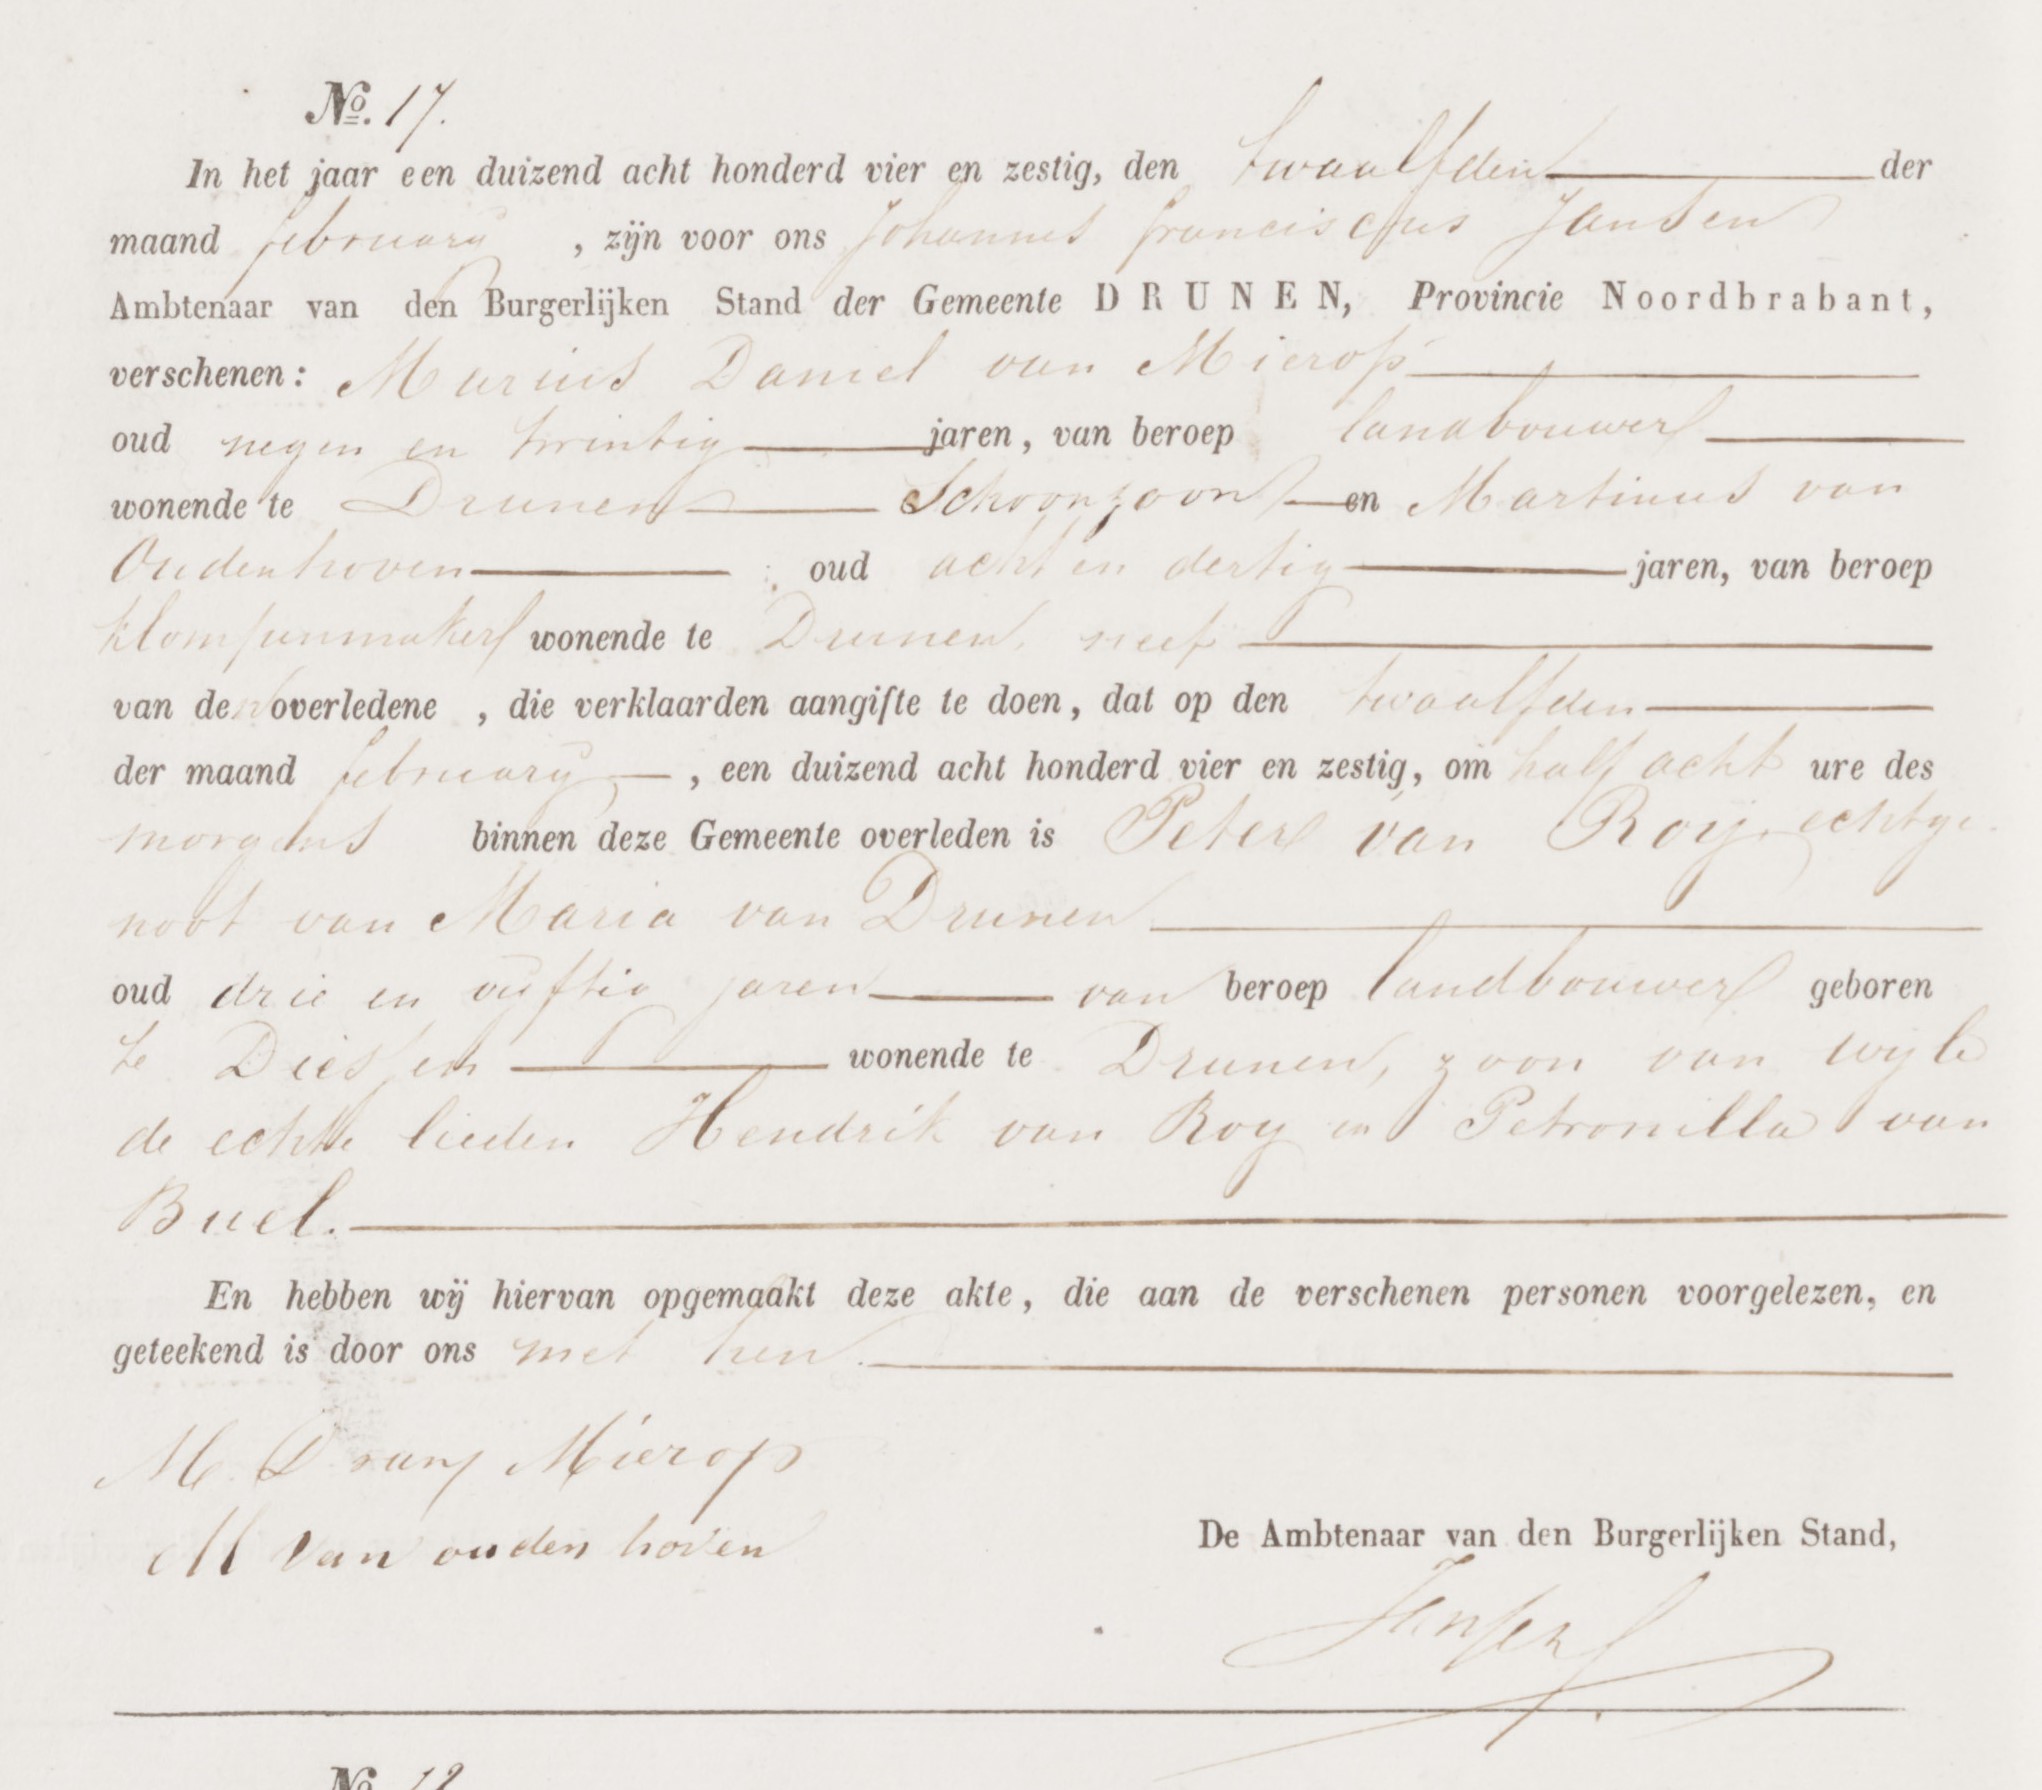 Nº. 17.
In het jaar een duizend acht honderd vier en zestig, den twaalfden der
maand february , zijn voor ons Johannes franciscus Jansen
Ambtenaar van den Burgerlijken Stand der Gemeente DRUNEN, Provincie Noordbrabant,
verschenen: Marius Daniel van Mierop
oud negen en twintig jaren, van beroep landbouwer
wonende te Drunen Schoonzoon en Martinus van
Oudenhoven oud acht en dertig jaren, van beroep
klompenmaker wonende te Drunen, neef
van den overledene , die verklaarden aangifte te doen, dat op den twaalfden
der maand february , een duizend acht honderd vier en zestig, om half acht ure des
morgens binnen deze Gemeente overleden is Peter van Roy, echtge
noot van Maria van Drunen
oud drie en vijftig jaren van beroep landbouwer geboren
te Diessen wonende te Drunen, zoon van wyle
de echte lieden Hendrik van Roy en Petronilla van
Buel.
En hebben wij hiervan opgemaakt deze akte, die aan de verschenen personen voorgelezen, en
geteekend is door ons met hen.
M. D. van Mierop
M van ouden hoven
De Ambtenaar van den Burgerlijken Stand,
Jansen
Nº 18